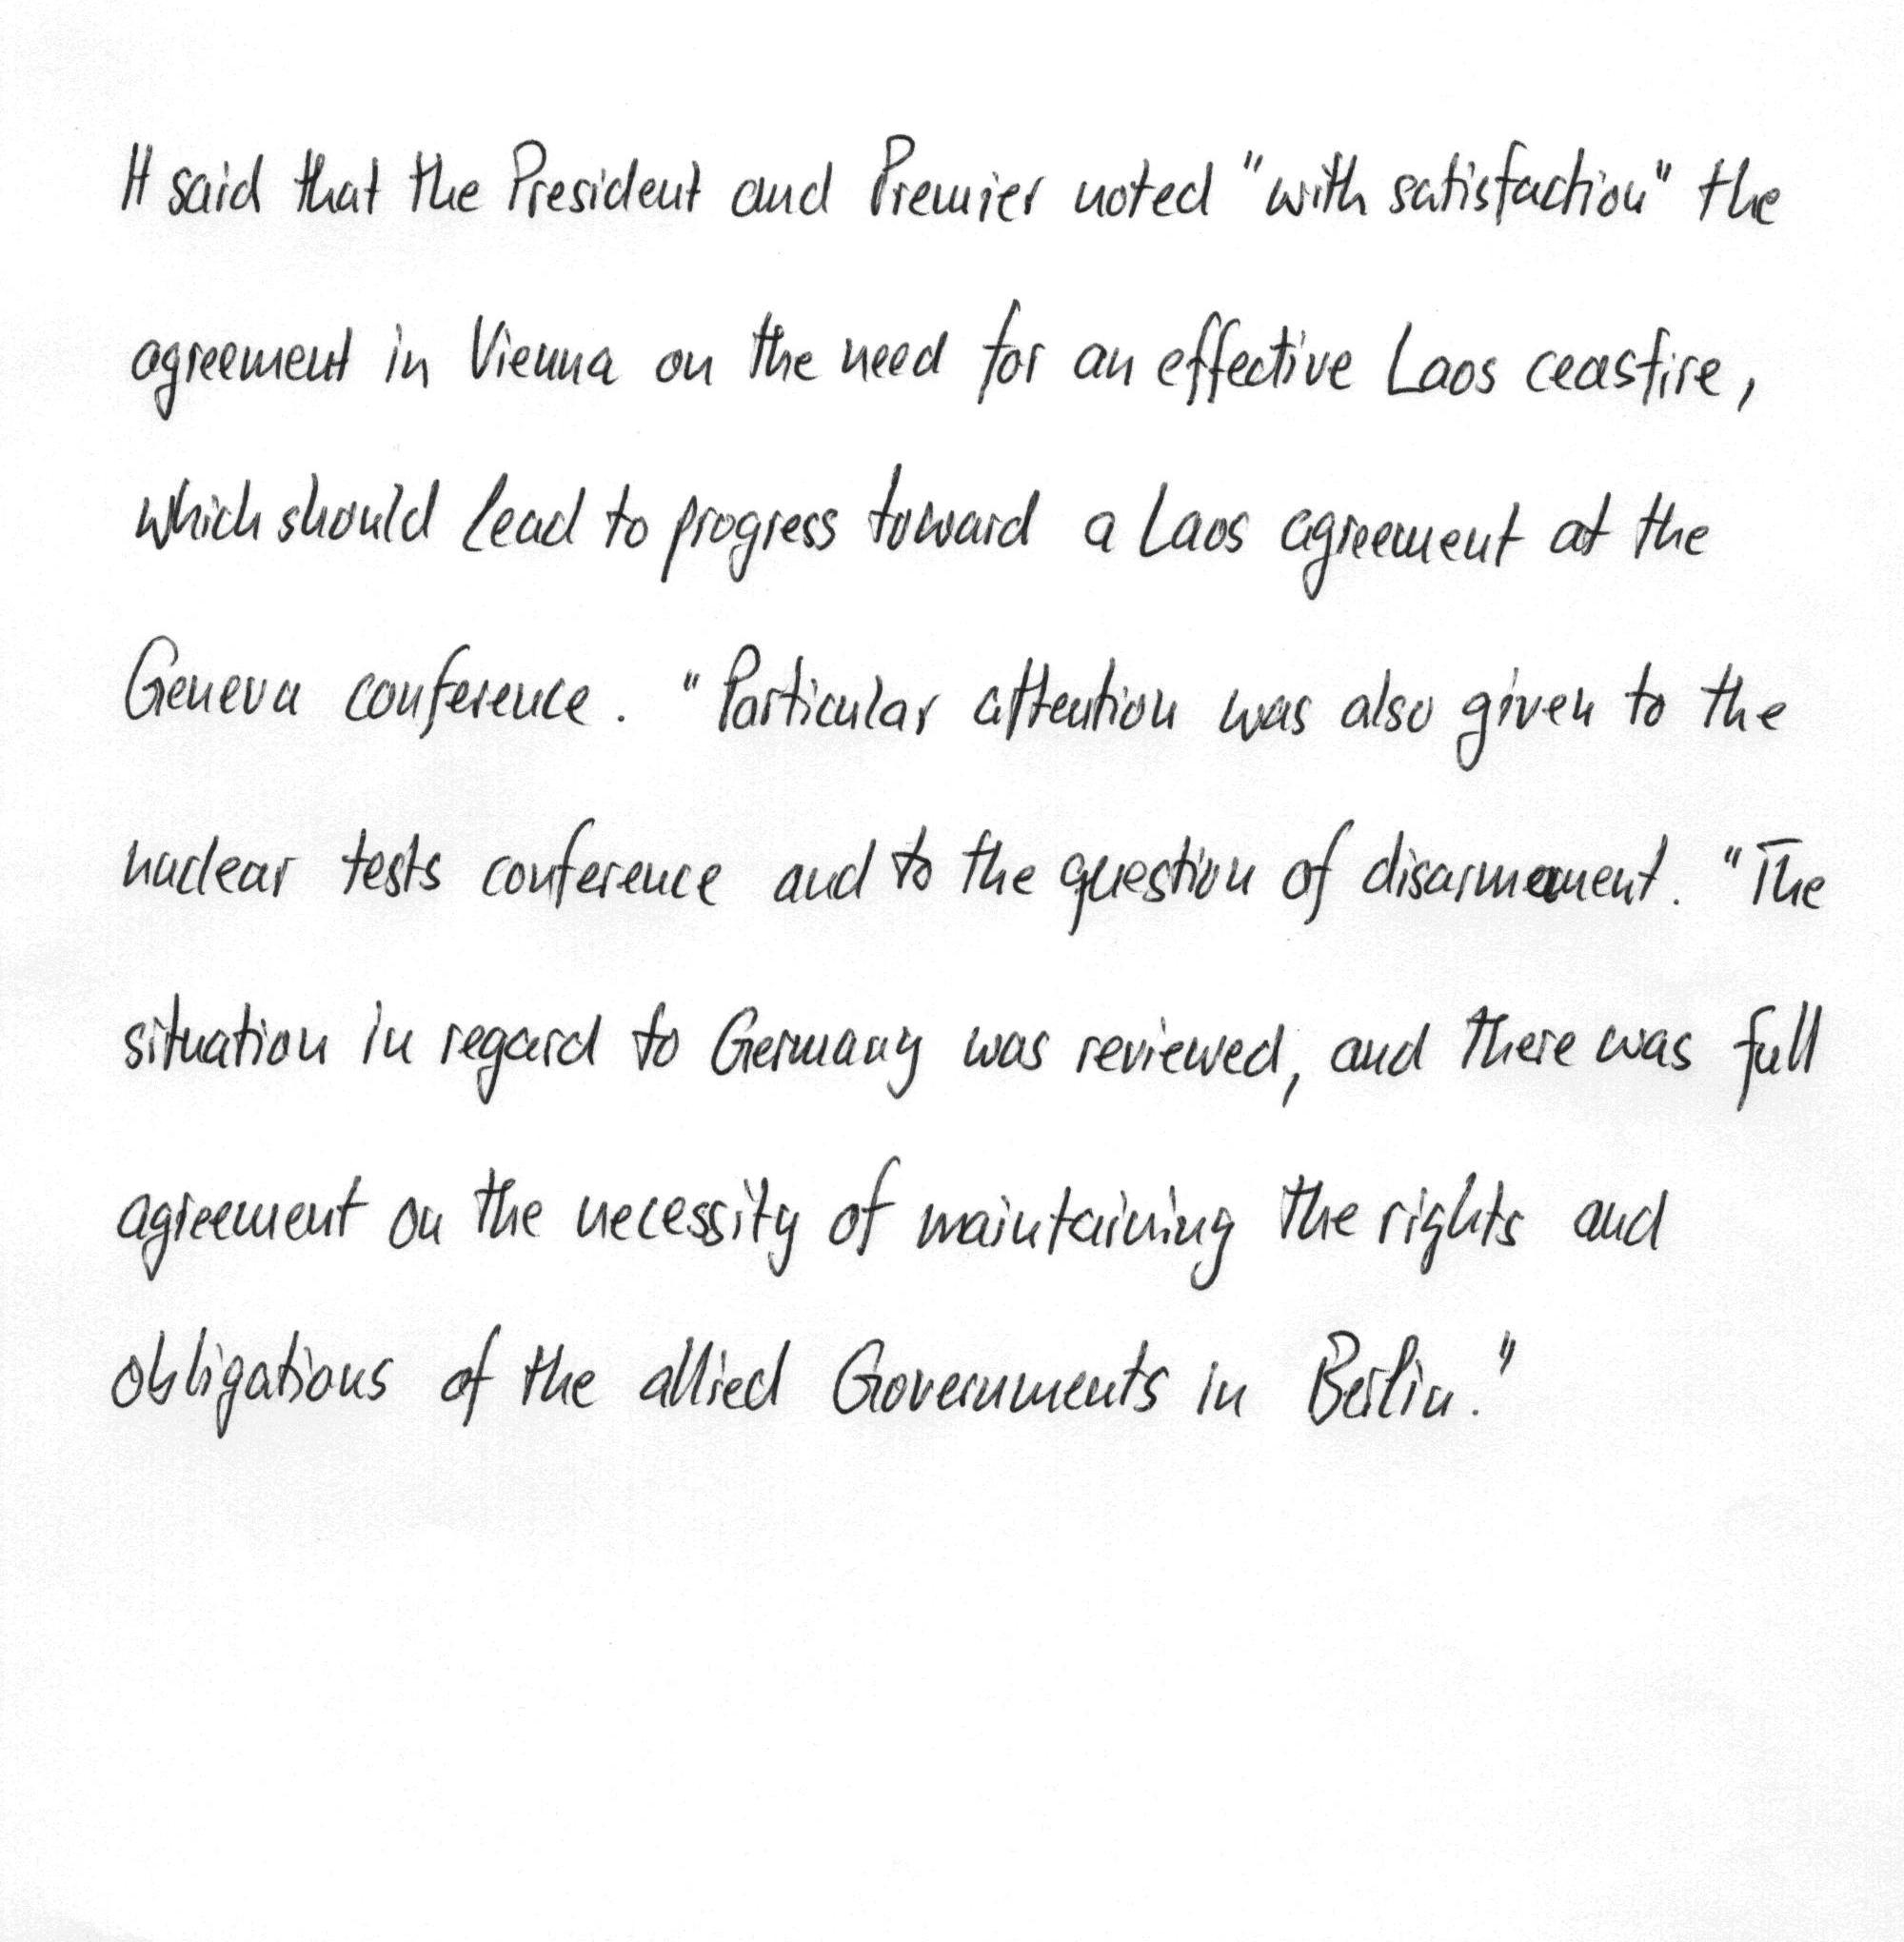 It said that the President and Premier noted "with satisfaction" the
agreement in Vienna on the need for an effective Laos ceasfire,
which should lead to progress toward a Laos agreement at the
Geneva conference. "Particular attention was also given to the
nuclear tests conference and to the question of disarmament. "The
situation in regard to Germany was reviewed, and there was full
agreement on the necessity of maintaining the rights and
obligations of the allied Governments in Berlin."